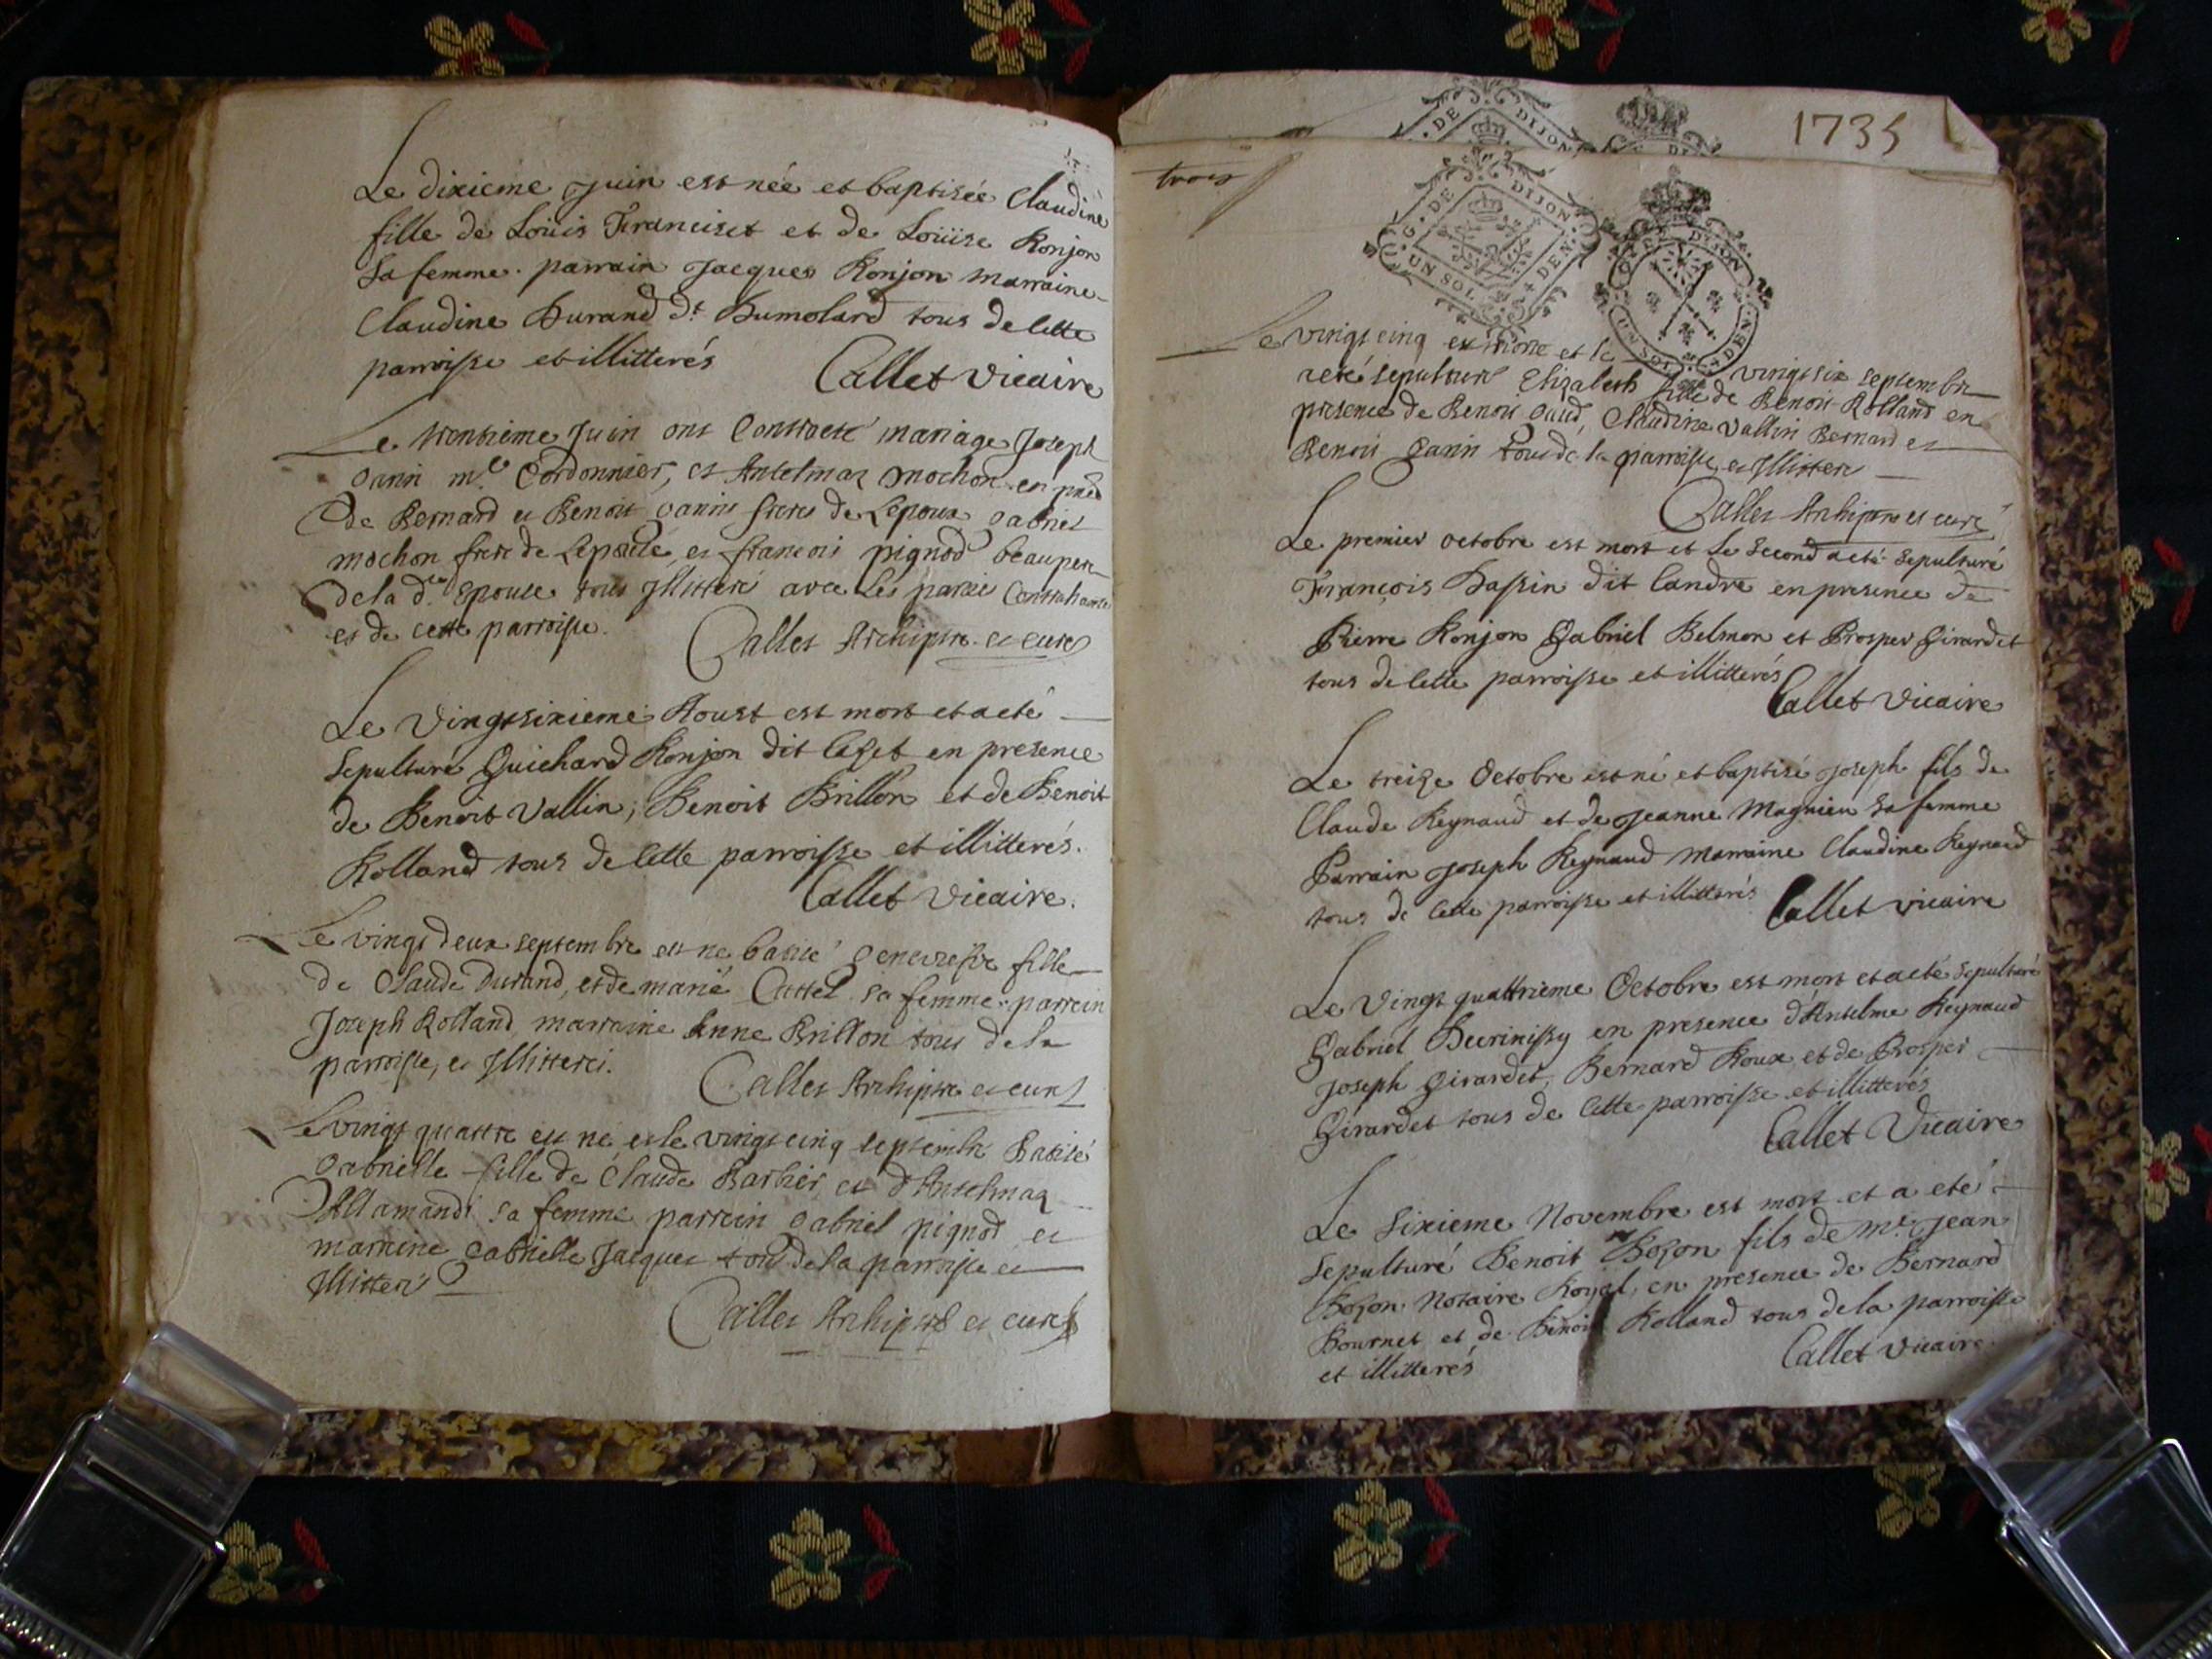 Le dixieme Juin est née et baptisée Claudine
fille de Loüis Franciset et de Loüise Ronjon
sa femme. parrain Jacques Ronjon marraine
Claudine Durand dt Dumolard tous de Cette
parroisse et illitterés
Callet Vicaire
Le trentième Juin ont Contracté mariage Joseph
mc Cordonnier, et Antelmaz mochon en
de Bernard et Benoit freres de Lepoux gabriel
mochon frere de Lepouse, et francois pignod beaupere
de la d. Epouse tous Illitteré avec les partie Contrahante
et de cette parroisse.
Callet Archiptre et curé
Le Vingtsixieme Aoust est mort et a eté
Sepulturé Guichard Ronjon dit en presence
de Benoit Vallin, Benoit Brillon et de Benoit
Rolland tous de Cette parroisse et illitterés.
Callet Vicaire.
Le vingt deux septembre est ne batisé geneviefve fille
de Claude Durand, et de marie Cattel sa femme. parrein
Joseph Rolland marraine Anne Brillon tous de la
parroisse, et Illitterei.
Callet Archiptre et curé
Le vingt quattre est né, et le vingt cinq septembre Batisé
Gabrielle fille de Claude Barbier et d'Antelmaz
Allamand sa femme parrein gabriel pignod et
marreine gabrielle Jacquet tous de la parroisse et
Illitteré
Callet Archiptre et curé
1735
trois
G. DE DIJON
UN SOL DEN.
DIJON
UN SOL DEN.
Le vingt cinq est morte et le vingt six septembre
a eté sepulturé Elizabeth fille de Benoit Rolland en
presence de Benoit gaud, Claudine Vallin Bernard et
Benoit tous de la parroisse et Illitteré
Callet Archiptre et curé
Le premier octobre est mort et Le Second a eté Sepulturé
François Dassin dit landre en presence de
Pierre Ronjon Gabriel Belmon et Prosper Girardet
tous de Cette parroisse et illitterés
Callet Vicaire
Le treize Octobre est né et baptisé Joseph fils de
Claude Reynaud et de Jeanne Magnieu sa femme
Parrain Joseph Reynaud Marraine Claudine Reynaud
tous de Cette parroisse et illitterés
Callet vicaire
Le Vingt quattrieme Octobre est mort et a eté sepulturé
Gabriel en presence d'Antelme Reynaud
Joseph Girardet, Bernard Roux et de Prosper
Girardet tous de Cette parroisse et illitterés
Callet Vicaire
Le Sixieme Novembre est mort et a eté
Sepulturé Benoit Bozon fils de Me Jean
Bozon Notaire Royal, en presence de Bernard
Bournet et de Benoit Rolland tous de la parroisse
et illitterés
Callet Vicaire.